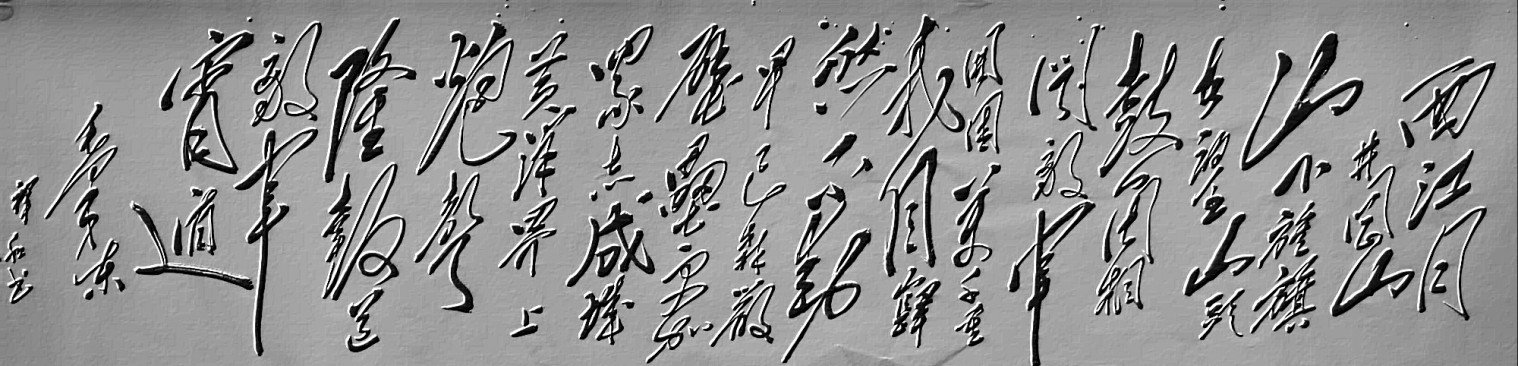 西江月
井岡山
山下旌旗
在望山頭
鼓角相
闻敌军
围困万千重
我自巋
然不动
早已森嚴
壁壘更加
眾志成城
黄洋界上
炮聲
隆報道
敌军
宵遁
毛泽东